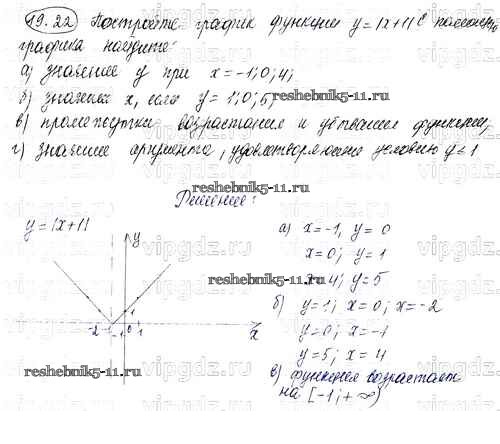 19.22 Постройте график функции y = |x+1| С помощью
графика найдите:
а) значение y при x = -1; 0; 4;
б) значения x, если y = 1; 0; 5;
reshebnik5-11.ru
в) промежутки возрастания и убывания функции,
г) значение аргумента, удовлетворяющие условию y ≤ 1
reshebnik5-11.ru
Решение:
y = |x+1|
y
-2 -1 0 1
1
x
reshebnik5-11.ru
а) x = -1, y = 0
x = 0; y = 1
x = 4; y = 5
б) y = 1; x = 0; x = -2
y = 0; x = -1
y = 5; x = 4
в) функция возрастает
на [-1; +∞)
reshebnik5-11.ru
reshebnik5-11.ru
vipgdz.ru vipgdz.ru vipgdz.ru